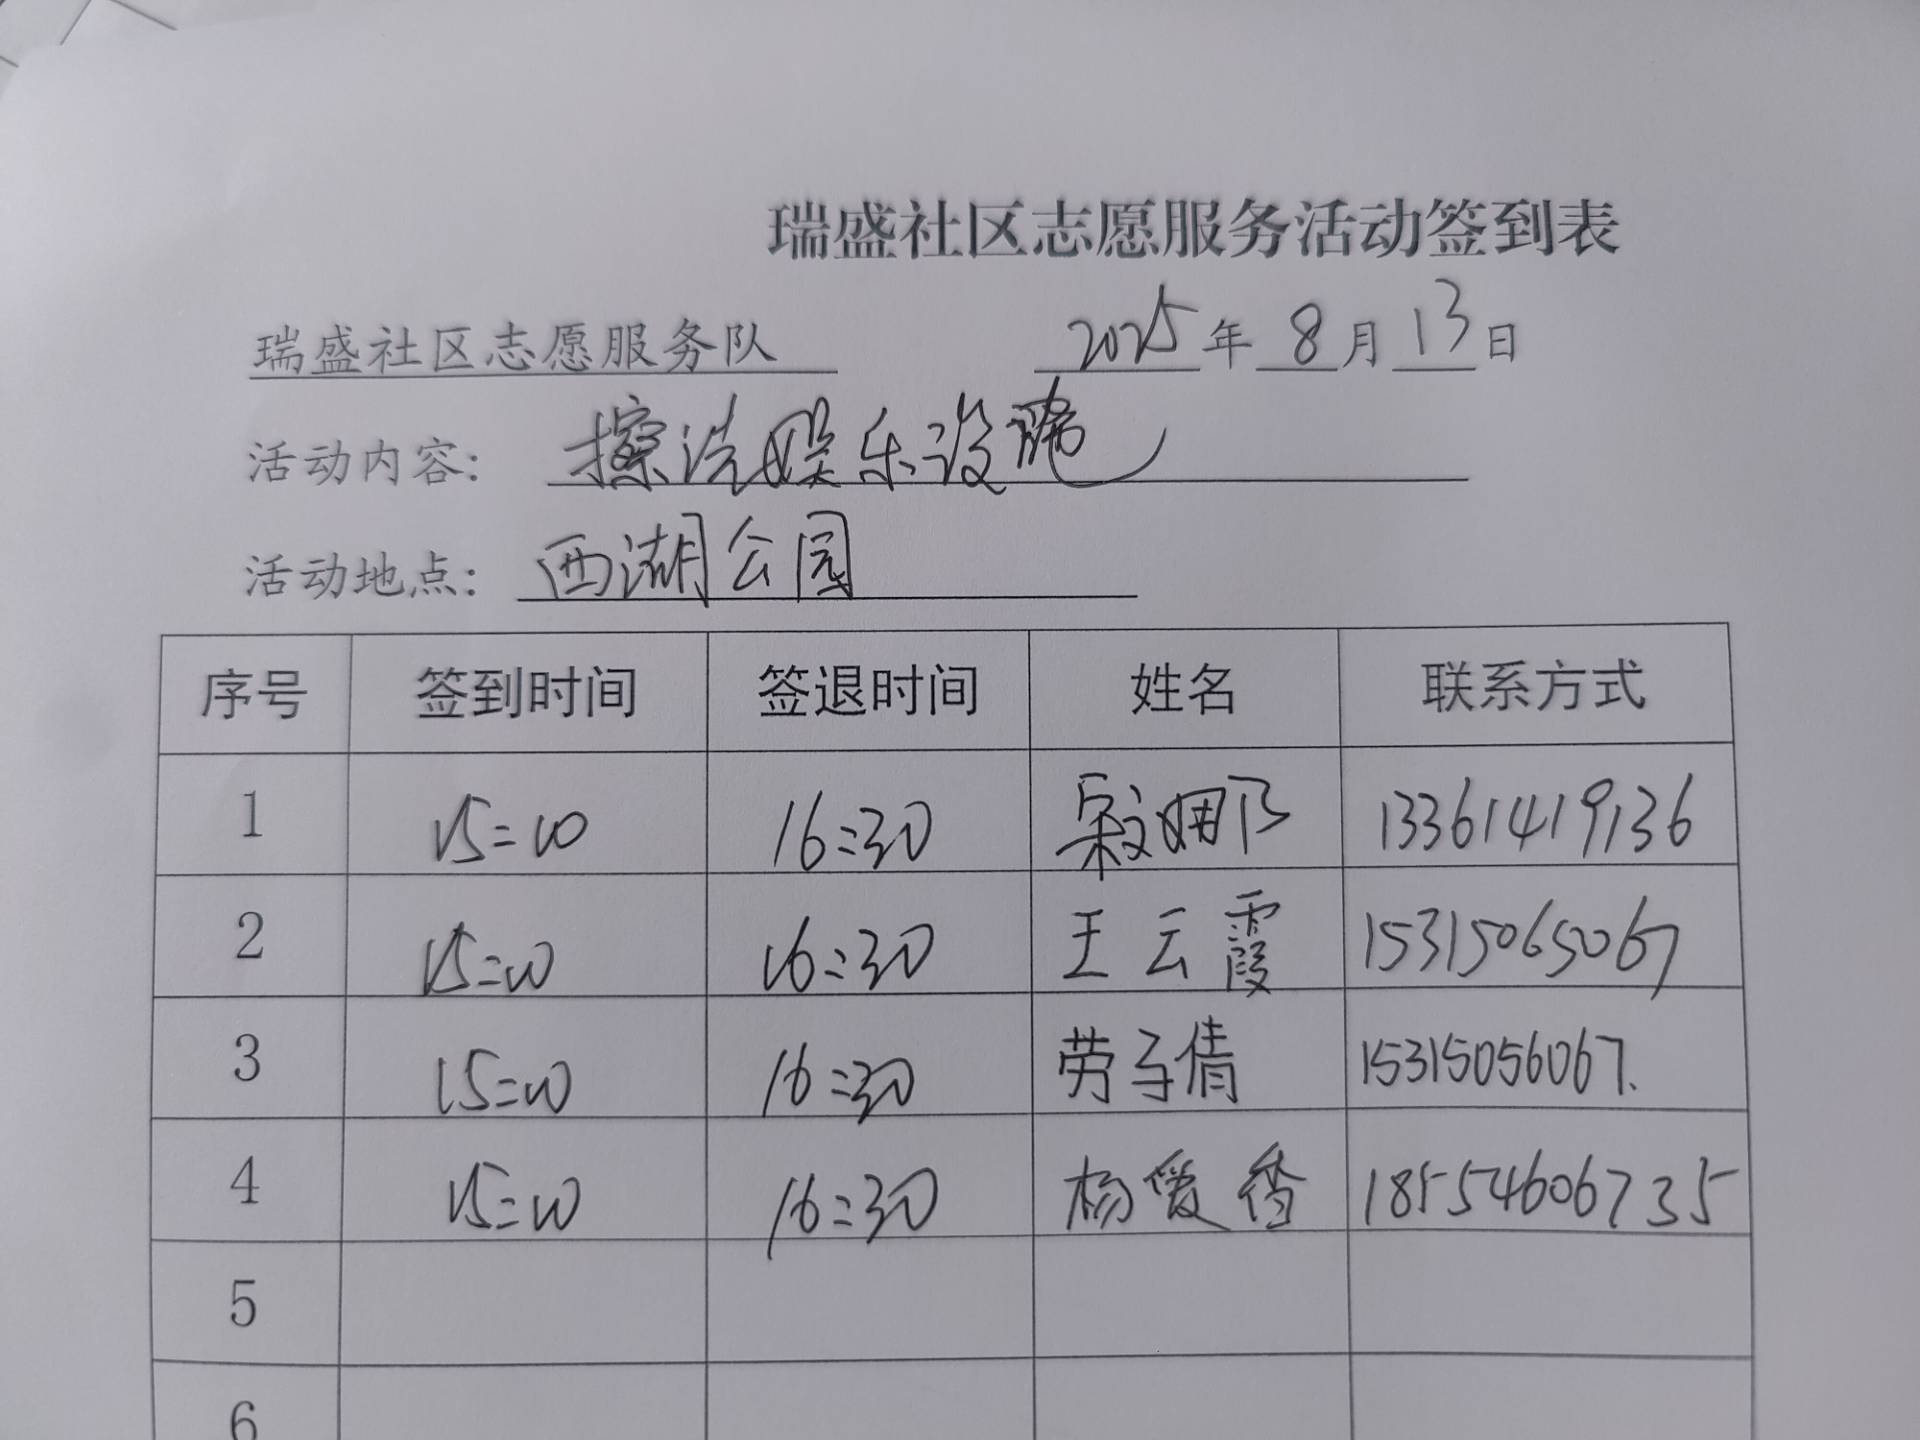 瑞盛社区志愿服务活动签到表
瑞盛社区志愿服务队 2025年 8月 13日
活动内容: 擦洗娱乐设施
活动地点: 西湖公园
序号 签到时间 签退时间 姓名 联系方式
1 15:00 16:30 13361419136
2 15:00 16:30 王云霞 15315065067
3 15:00 16:30 劳子倩 15315056067.
4 15:00 16:30 杨爱香 18554606735
5
6